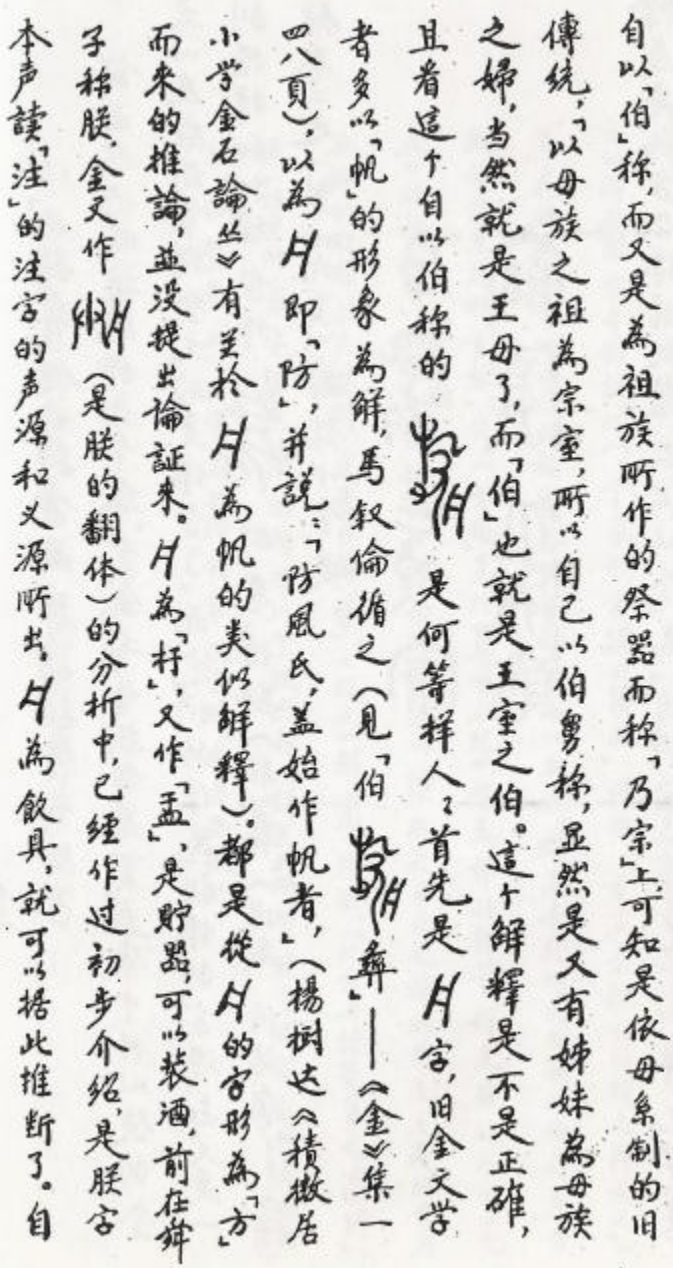 自以「伯」称，而又是為祖族所作的祭器而称「乃宗」上，可知是依母系制的旧
傳統，「以母族之祖為宗室，所以自己以伯舅称，显然是又有姊妹為母族
之婦，当然就是王母了，而「伯」也就是王室之伯。這个解釋是不是正確，
且看這个自以伯称的 是何等样人？首先是 字，旧金文学
者多以「帆」的形象為解，馬叙倫循之（見「伯 彝」——《金》集一
四八頁），以為 即「防」，并説：「防風氏，盖始作帆者，」（楊树达《積微居
小学金石論丛》有关於 為帆的类似解釋）。都是從 的字形為「方」
而來的推論，並没提出論証來。 為「杅」，又作「盂」，是貯器，可以装酒，前在舜
子称朕，金文作 （是朕的翻体）的分析中，已經作过初步介紹，是朕字
本声讀「注」的注字的声源和义源所出。 為飲具，就可以据此推断了。自